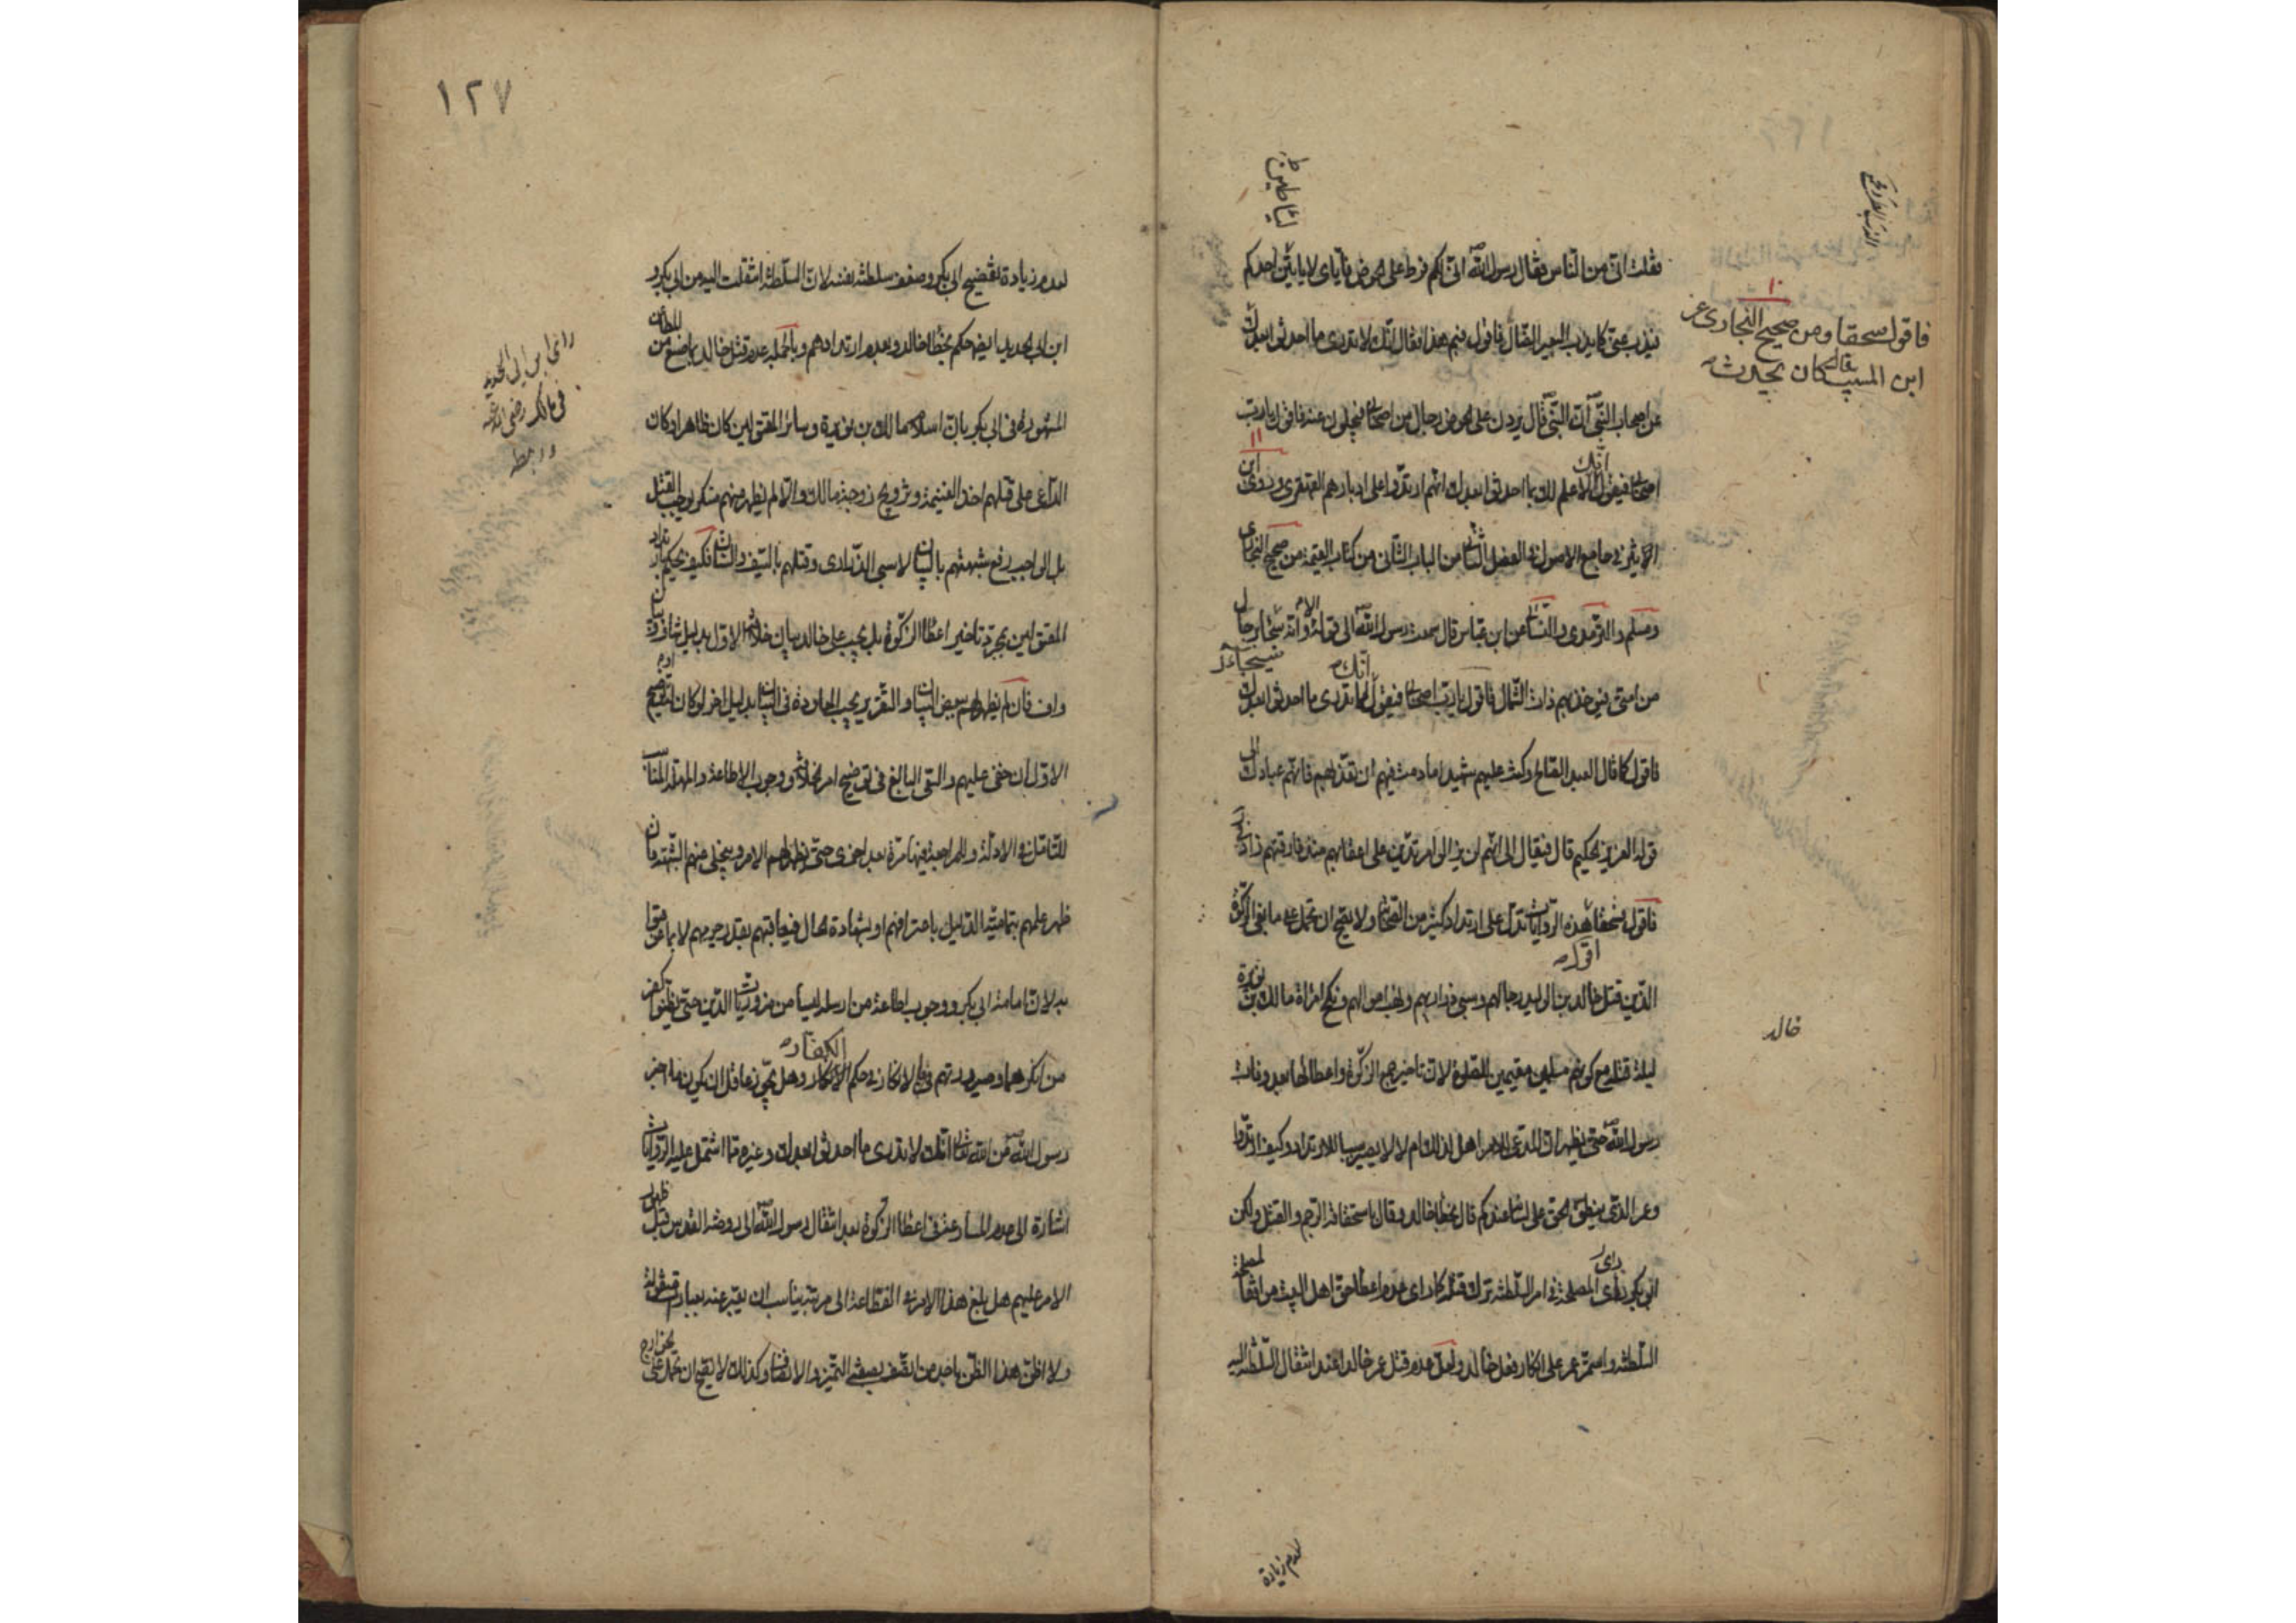 فقلت انى من الناس فقال رسول الله انى لكم فرط على الحوض فاياى لا ياتين احدكم
فيذب عنى كما يذب البعير الضال فاقول فيم هذا فيقال انك لا تدرى ما احدثوا بعدك
فاقول سحقا ومن صحيح البخارى عن
ابن المسيب انه كان يحدث
عن اصحاب النبى ان النبى قال يردن على الحوض رجال من اصحابى فيحلون عنه فاقول يا رب
اصحابى فيقول انك لا علم لك بما احدثوا بعدك انهم ارتدوا على ادبارهم القهقرى وروى ابن
الاثير فى جامع الاصول فى الفصل الثانى من الباب الثانى من كتاب القيمة من صحيح البخارى
ومسلم والترمذى والنسائى عن ابن عباس قال سمعت رسول الله الى قوله الا وانه سيجاء برجال
من امتى فيؤخذ بهم ذات الشمال فاقول يا رب اصحابى فيقول انك لا تدرى ما احدثوا بعدك
فاقول كما قال العبد الصالح وكنت عليهم شهيدا ما دمت فيهم ان تعذبهم فانهم عبادك الى
قوله العزيز الحكيم قال فيقال لى انهم لن يزالوا مرتدين على اعقابهم منذ فارقتهم
فاقول سحقا هذه الروايات تدل على ارتداد كثير من الصحابة ولا يصح ان تحمل على مانعى الزكوة
اقول
الذين قتل خالد بن الوليد رجالهم وسبى ذراريهم ونهب اموالهم ونكح امراة مالك بن نويرة
خالد
ليلة قتله مع كونهم مسلمين مقيمين للصلوة لان تاخيرهم الزكوة واعطائها بعد وفات
رسول الله حتى يظهر ان المدعى للامر اهل لذلك ام لا لا يصير سببا للارتداد وكيف ارتدوا
وعمر الذى ينطق الحق على لسانه عندكم قال بخطا خالد وقال باستحقاقه الرجم والقتل ولكن
ابى بكر راى المصلحة فى امر السلطنة ترك قتله كما راى عدم اعطا حق اهل البيت من
السلطنة واستمر عمر على انكار فعل خالد ولعل عدم قتل عمر خالدا عند انتقال السلطنة اليه
لعدم زيادة
١٢٧
لعدم زيادة تفضيح ابى بكر وضعف سلطنة نفسه لان السلطنة انتقلت اليه من ابى بكر و
ابن ابى الحديد ايضا حكم بخطا خالد وبعدم ارتدادهم وبالجملة عدم قتل خالد
راى ابن ابى الحديد
فى مالك رضى الله عنه
ورهطه
المشهورة فى ابى بكر بان اسلام مالك بن نويرة وسائر المقتولين كان ظاهرا وكان
الداعى على قتلهم اخذ الغنيمة وتزويج زوجة مالك والا لم يظهر منهم منكر يوجب القتل
بل الواجب رفع شبهتهم بالبيان لا سبى الذرارى وقتلهم بالسيف والسنان فكيف يحكم بارتداد
المقتولين بمجرد تاخير اعطا الزكوة بل يجب على خالد بيان خلافة الاول بدليل
واف فان لم يظهر لهم بعض البيان او التقرير يجب المعاودة فى البيان بدليل اخر لو كان
الاول ان خفى عليهم والسعى البالغ فى توضيح امر الخلافة ووجوب الاطاعة والمهلة المناسب
للتامل فى الادلة والمراجعة فيها مرة بعد اخرى حتى يظهر لهم الامر وينجلى منهم الشبهة فان
ظهر علمهم بتمامية الدليل باعترافهم او بشهادة الحال فيعاقبهم بقدر جرمهم لا بما عوقبوا
به لان امامة ابى بكر ووجوب اطاعة من ارسله ليسا من ضروريات الدين حتى يظنوا كفر
من انكرهما وصيرورتهم بالانكار فى حكم الكفار وهل يجوز عاقل ان يكون ما اخبر
رسول الله من الله تعالى انك لا تدرى ما احدثوا بعدك وغيره مما اشتمل عليه الروايات
اشارة الى عدم المسارعة فى اعطا الزكوة بعد انتقال رسول الله الى روضة القدس قبل ظهور
الامر عليهم هل بلغ هذا الامر فى الفظاعة الى مرتبة يناسب ان يعبر عنه بعبارات منقولة
ولا اظن هذا الظن باحد من اتصف بصفتى التميز والانصاف وكذلك لا يصح ان تحمل على